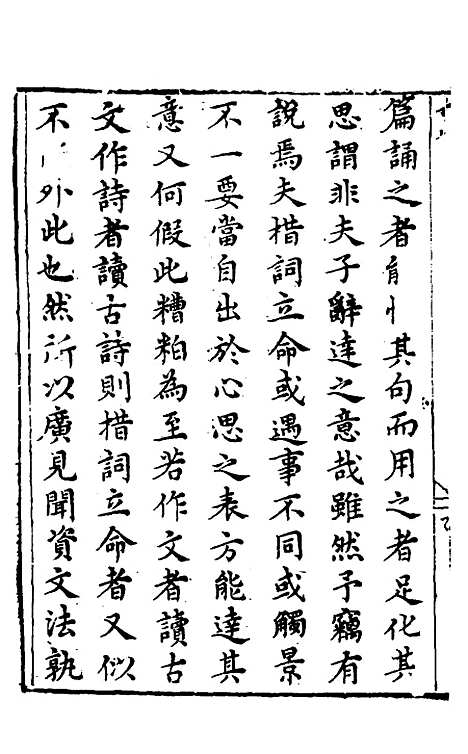 篇誦之者其句而用之者足化其
思謂非夫子辭達之意哉雖然予竊有
說焉夫措詞立命或遇事不同或觸景
不一要當自出於心思之表方能達其
意又何假此糟粕為至若作文者讀古
文作詩者讀古詩則措詞立命者又似
不外此也然所以廣見聞資文法孰